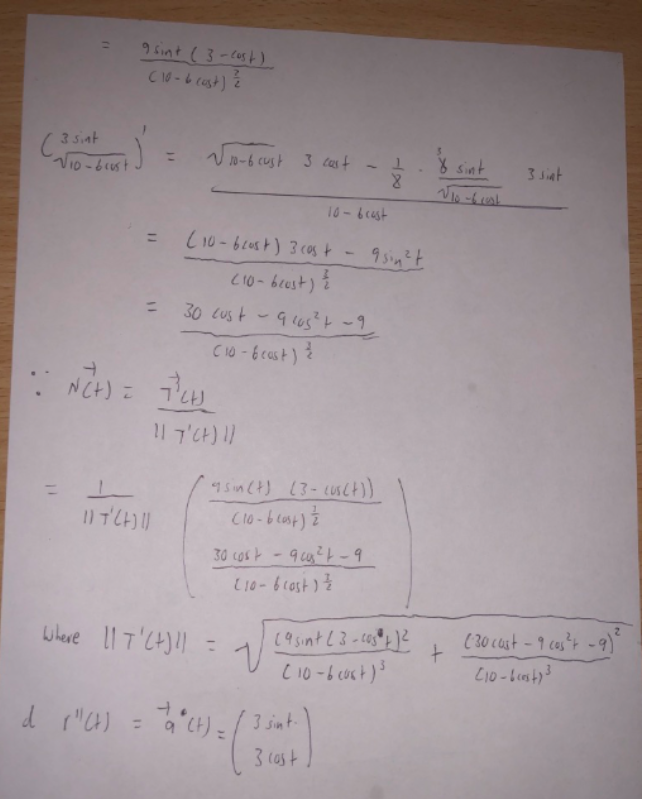 = 9 sint (3 - cost) / (10 - 6 cost)^{3/2}
(3 sint / √10 - 6cost)' = (√10-6 cost 3 cost - 1/2 · 6 sint / √10-6 cost 3 sint) / (10 - 6cost)
= ((10 - 6cost) 3cost - 9sin²t) / (10 - 6cost)^{3/2}
= (30 cost - 9cos²t - 9) / (10 - 6cost)^{3/2}
∵ N(t) = T'(t) / ||T'(t)||
= 1 / ||T'(t)|| (9sin(t) (3 - cos(t)) / (10 - 6cost)^{3/2}
30cost - 9cos²t - 9 / (10 - 6cost)^{3/2})
Where ||T'(t)|| = √((9sint(3 - cost)² / (10 - 6cost)³ + (30cost - 9cos²t - 9)² / (10 - 6cost)³)
d r''(t) = a(t) = (3 sint
3 cost)